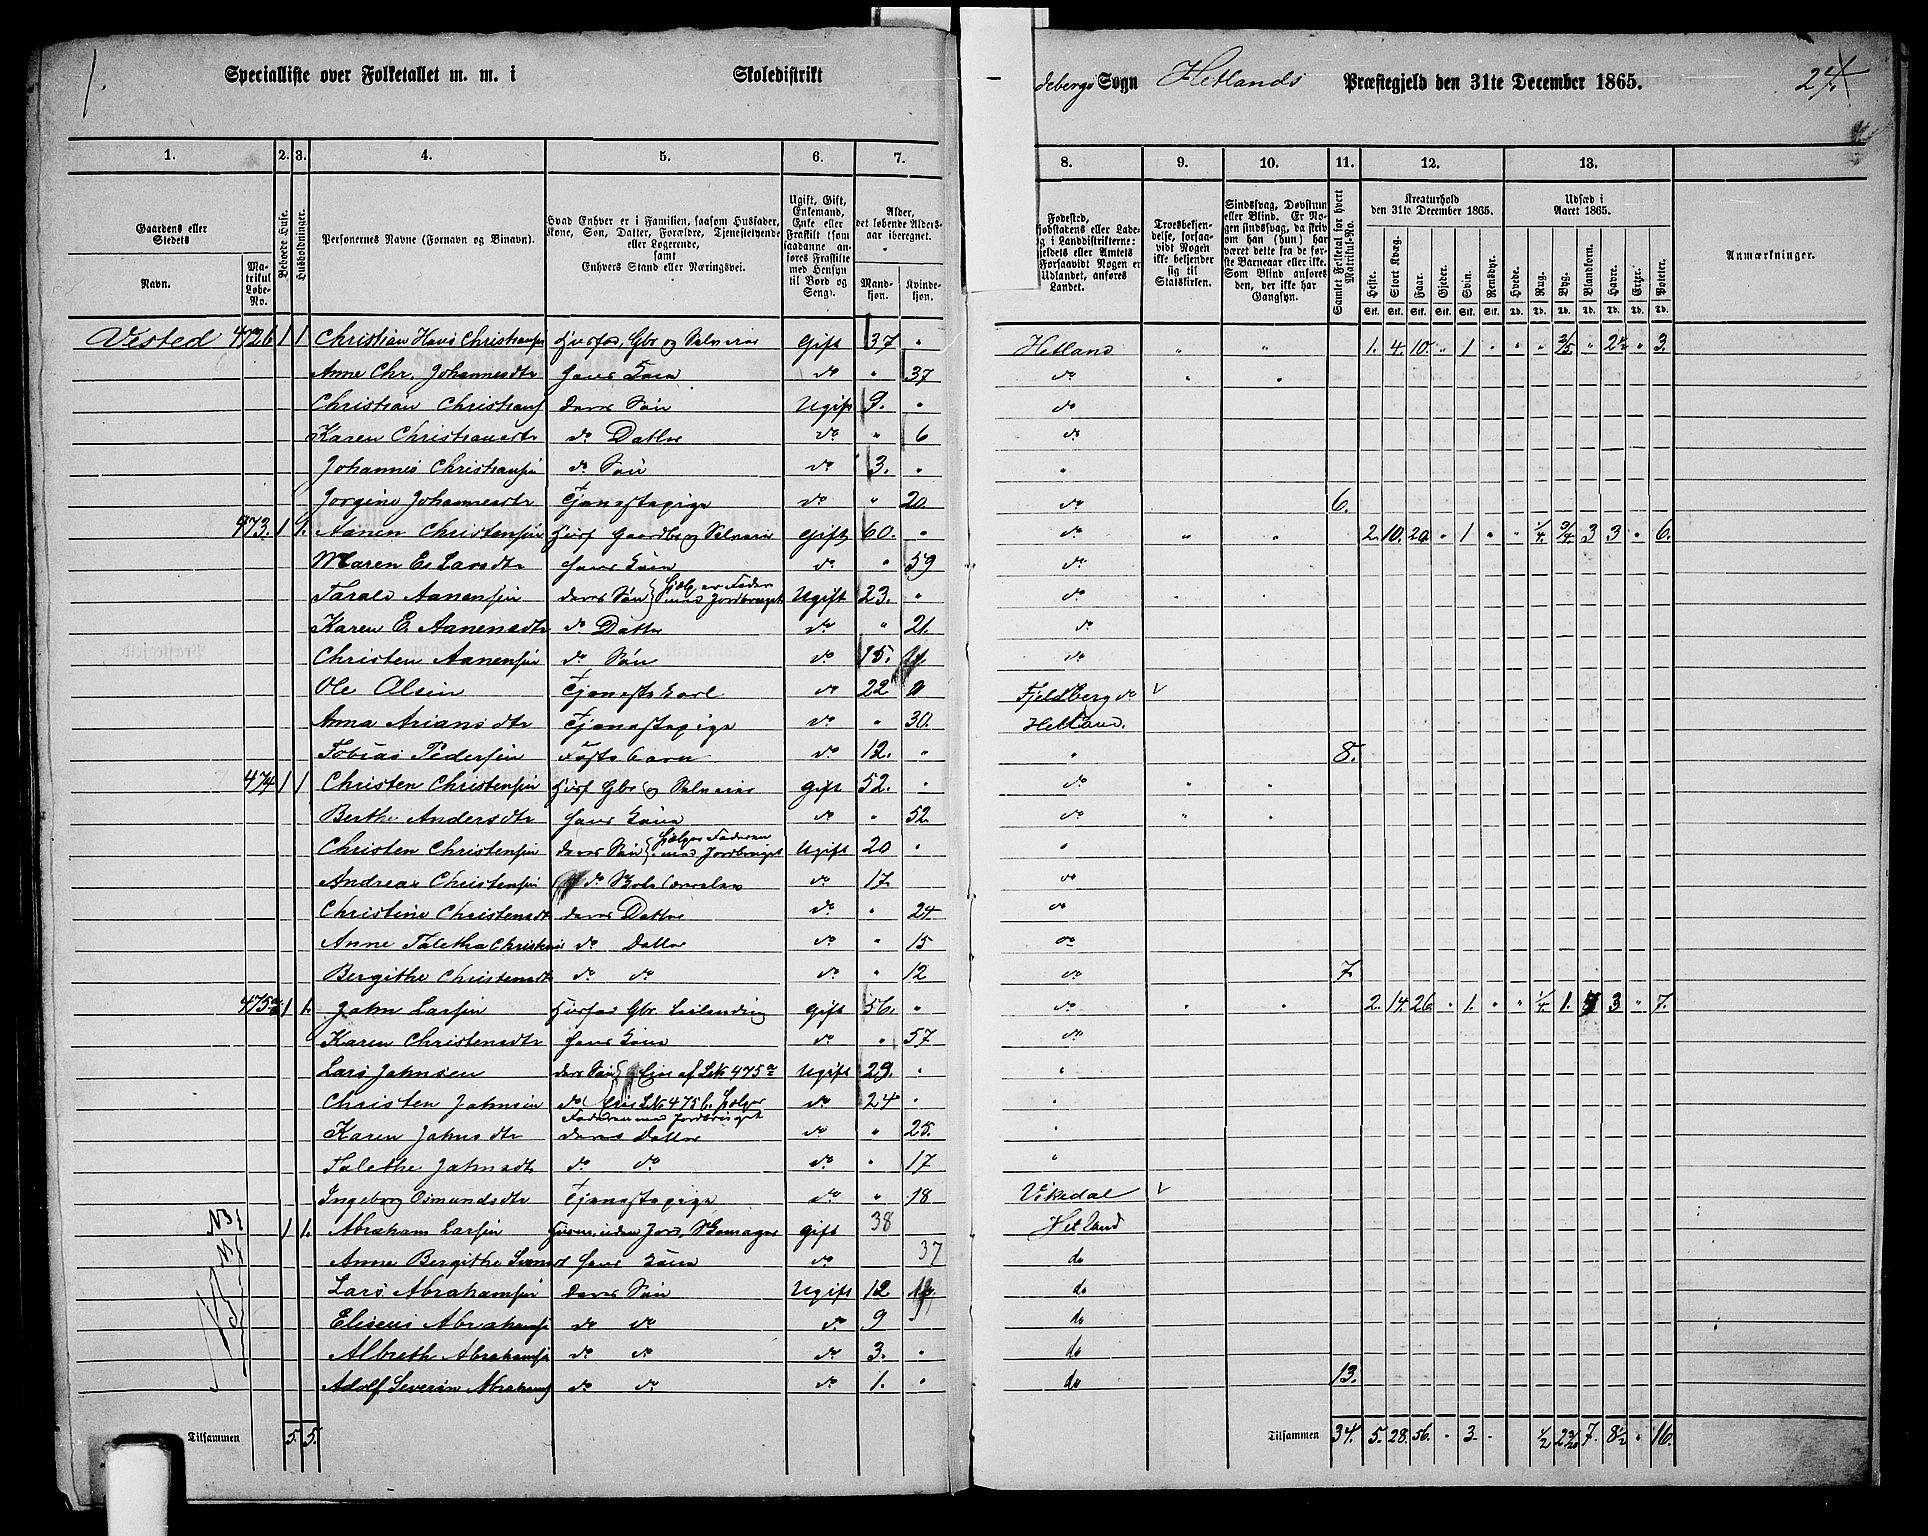 1.
Specialliste over Folketallet m. m. i Skoledistrikt
debergs Sogn Hetlands Præstegjeld den 31te December 1865. 24
1. 2. 3. 4. 5. 6. 7. 8. 9. 10. 11. 12. 13.
Gaardens eller Stedets
Navn.
Matrikul Løbe-No.
Beboede Huse.
Husholdninger.
Personernes Navne (Fornavn og Binavn).
Hvad Enhver er i Familien, saasom Husfader, Kone, Søn, Datter, Forældre, Tjenestetyende eller Logerende,
samt
Enhvers Stand eller Næringsvei.
Ugift, Gift, Enkemand, Enke eller Fraskilt (som saadanne anføres Fraskilte med Hensyn til Bord og Seng).
Alder, det løbende Aldersaar iberegnet.
Mandkjøn. Kvindekjøn.
Fødested,
Troesbekjendelse, forsaavidt Nogen ikke bekjender sig til Statskirken.
Sindssvag, Døvstum eller Blind. Er Nogen sindssvag, da skrives om han (hun) har været dette fra de første Barneaar eller ikke. Som Blind anføres den, der ikke har Gangsyn.
Samlet Folketal for hvert Matrikul-No.
Kreaturhold den 31te December 1865.
Heste. Stort Kvæg. Faar. Gjeder. Svin. Rensdyr.
Udsæd i Aaret 1865.
Hvede. Rug. Byg. Blandkorn. Havre. Erter. Poteter.
Anmærkninger.
Stk. Stk. Stk. Stk. Stk. Stk. Td. Td. Td. Td. Td. Td. Td.
Vested 472b 1 1 Christian Hans Christensen Husfad, Gbr og Selveier Gift 37 " Hetland " " 1. 4. 10. " 1 " " " " 3.
Anne Chr. Johannesdtr hans Kone do " 37 do " "
Christian Christians deres Søn Ugift 9. " do
Karen Christiansdtr do Datter do " 6 do
Johannes Christiansen do Søn do 3. " "
Jorgine Johannesdtr Tjenestepige do " 20 do 6.
473. 1 1. Aanen Christensen Husf Gaardbr og Selveier gift 60. " do " " 2. 10. 20 " 1 " " 1/4 3/4 3 3 " 6.
Maren E. Larsdtr hans Kone do " 59 do
Tarale Aanensen deres Søn hjælper Fader med Jordbruget Ugift 23. " do
Karen E. Aanensdtr do Datter do " 21. do
Christen Aanensen do Søn do 15. do
Ole Olsen Tjenestekarl do 22 Fjeldberg do
Anna Ariansdtr Tjenestepige do " 30. Hetland.
Tobias Pedersen Fosterbarn do 12. " " 8.
474 1 1 Christen Christensen Husf Gbr og Selveier gift 52. " do " "
Berthe Andersdtr hans Kone do " 52 do " "
Christen Christensen deres Søn hjælper Faderen med Jordbruget Ugift 20 " "
Andreas Christensen do do 17. do
Christine Christensdt deres Datter do " 24 do
Anne Taletha Christens do Datter do " 15 do
Bergithe Christensdt do do do " 12 do 7
475a 1 1. John Larsen Husfad Gbr Leilending gift 56. " do " " 2. 14. 26. " 1. " " 1/4 1. 3 " 7.
Karen Christensdtr hans Kone do " 57 do
Lars Johnsen deres Søn Eier af Lk 475a Ugift 29. " "
Christen Johnsen do Eier Lk 475b. hjelper Faderen med Jordbruget do 24 " "
Karen Johnsdtr deres Datter do " 25. "
Talethe Johnsdt do do do " 17 "
Ingeborg Osmundsdtr Tjenestepige do " 18 Vikedal
NB 1 1. Abraham Larsen Husm. uden Jord, Skomager gift 38 Hetland
Anne Bergithe hans Kone do 37 do
Lars Abrahamsen deres Søn Ugift 12 do
Eliseus Abrahamse do do do 9 " do
Albreth Abrahamse do do do 3. " do
Adolf Severin Abrahams do do do 1. " do 13.
Tilsammen 5. 5. Tilsammen 34. 5. 28. 56. " 3. " 1/2 7. 8 1/2 " 16.